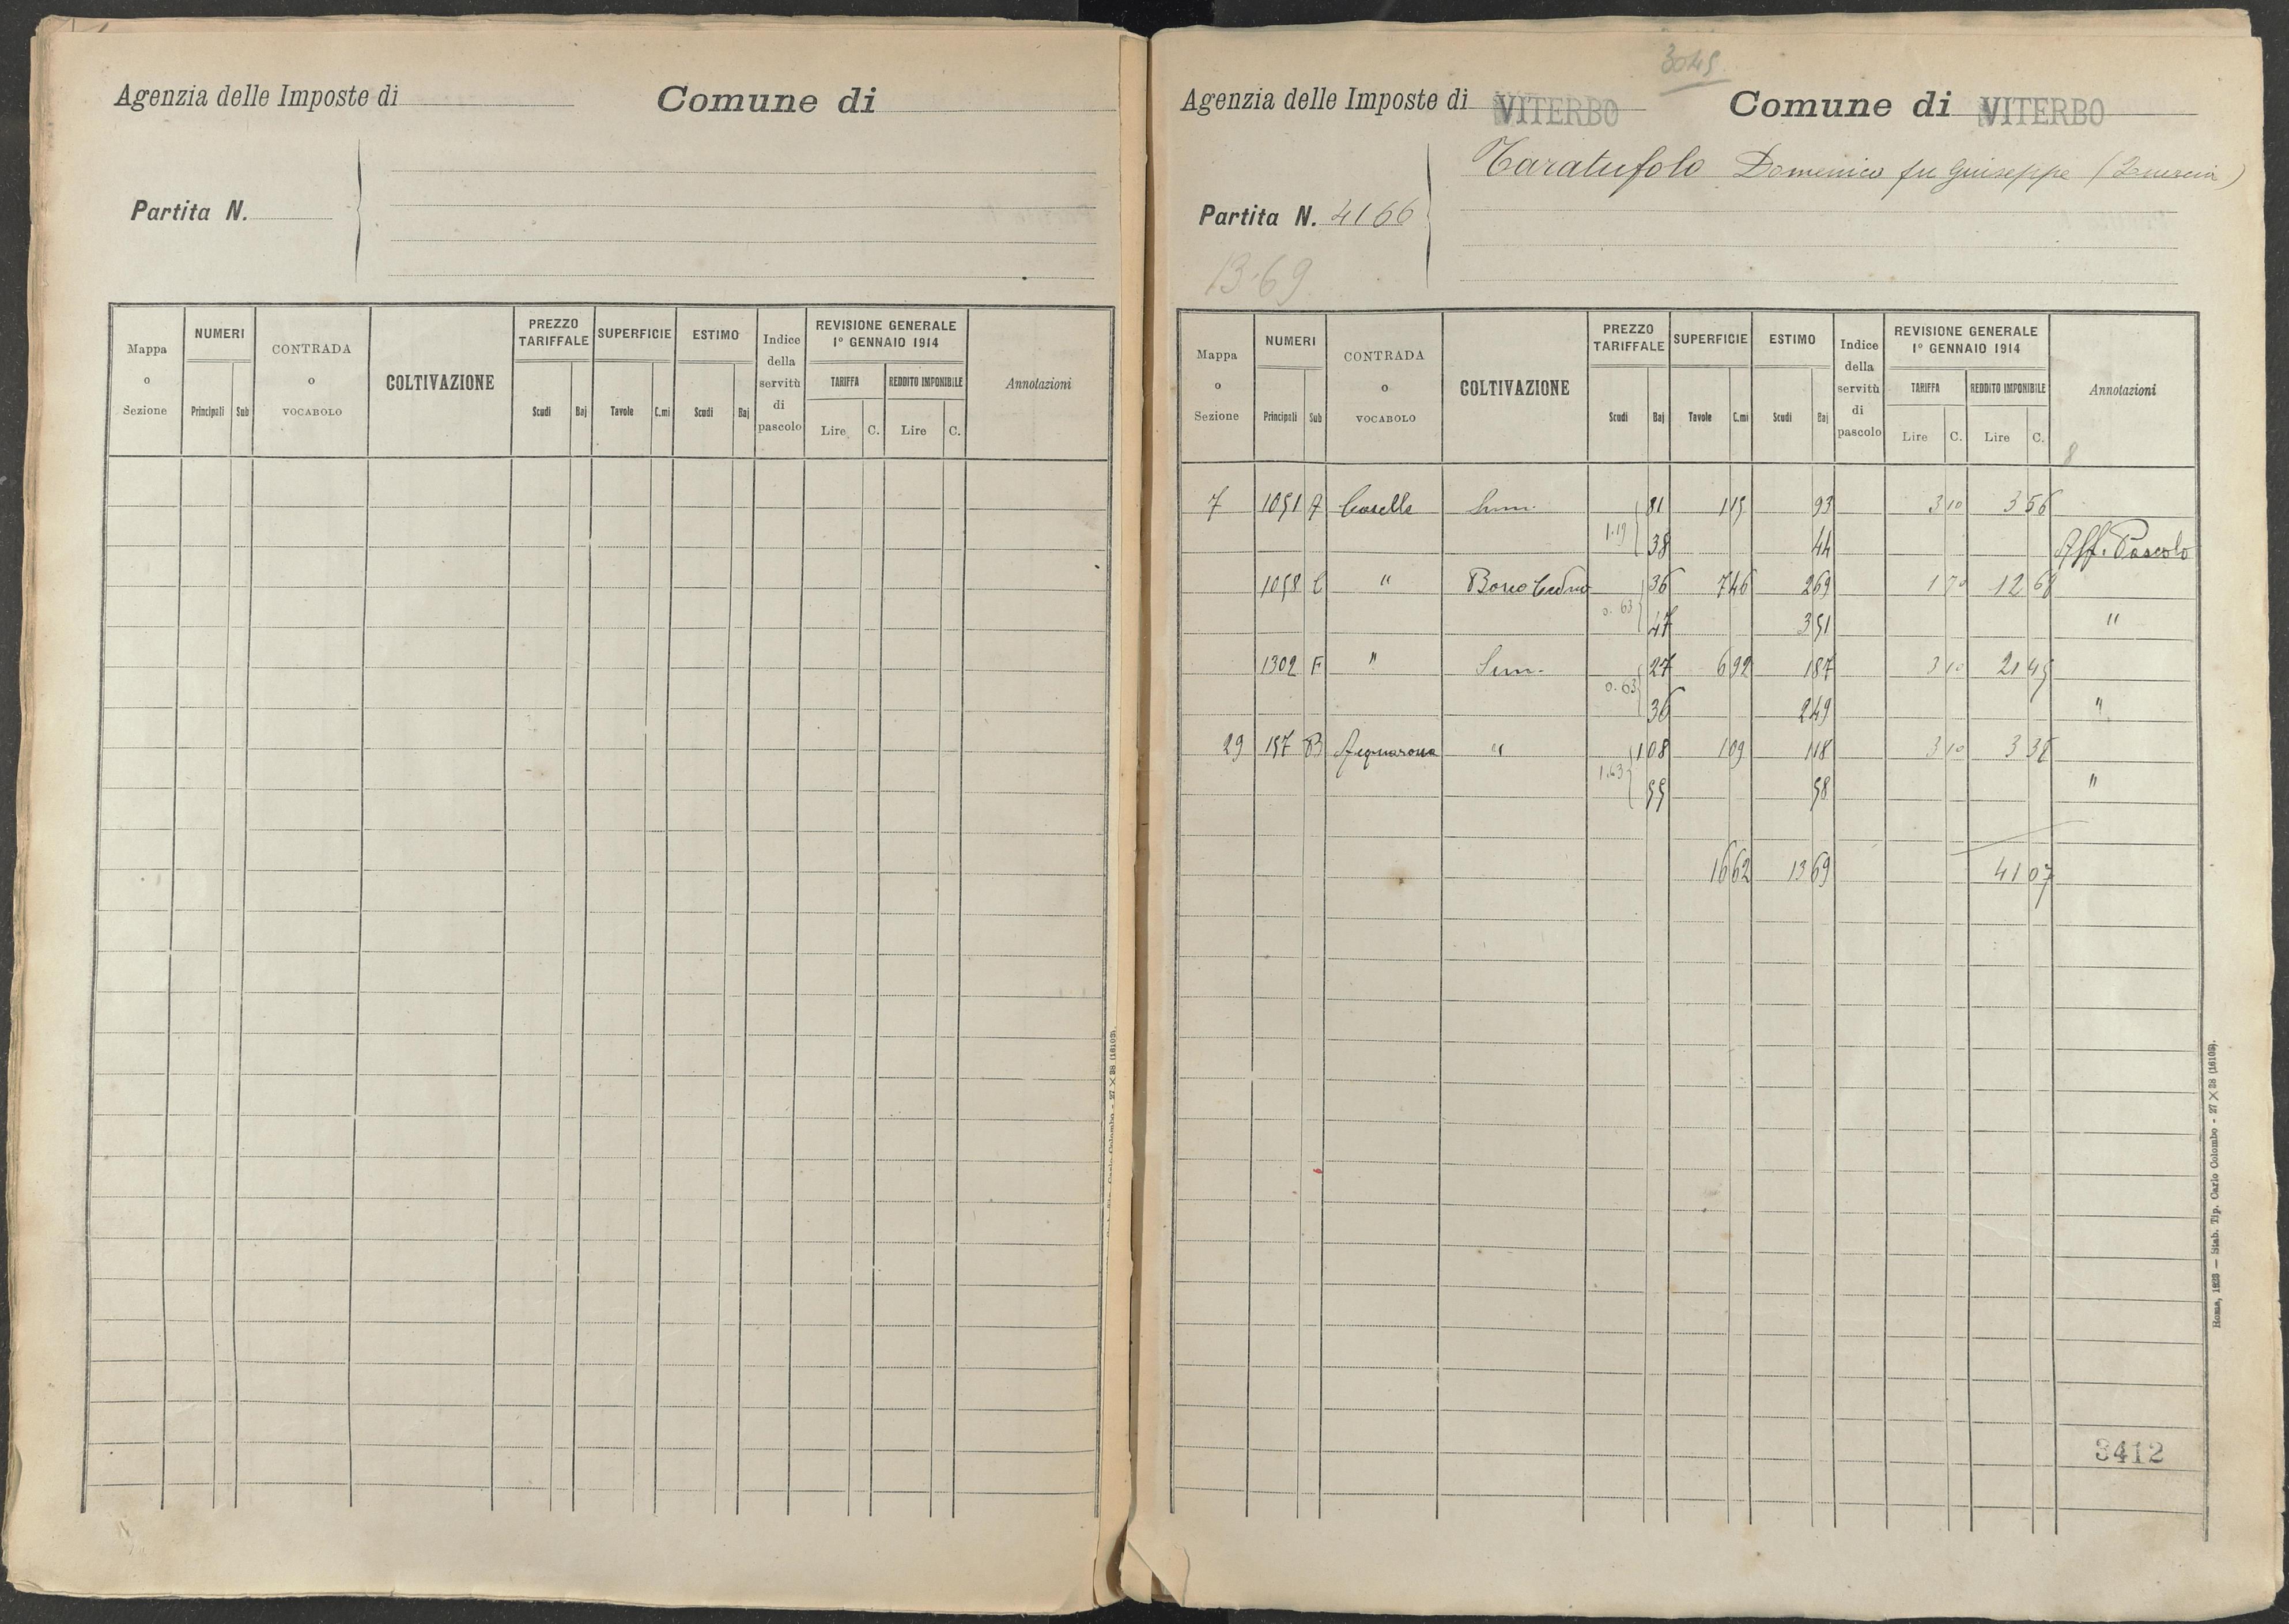 Agenzia delle Imposte di
Comune di
Partita N.
Mappa o Sezione
NUMERI
Principali
Sub
CONTRADA o VOCABOLO
COLTIVAZIONE
PREZZO TARIFFALE
Scudi
Baj
SUPERFICIE
Tavole
C.mi
ESTIMO
Scudi
Baj
Indice della servitù di pascolo
REVISIONE GENERALE
1º GENNAIO 1914
TARIFFA
REDDITO IMPONIBILE
Lire
C.
Lire
C.
Annotazioni
3045
Agenzia delle Imposte di VITERBO
Comune di VITERBO
Taratufolo Domenico fu Giuseppe (Quercia)
Partita N. 4166
13.69
Mappa o Sezione
NUMERI
Principali
Sub
CONTRADA o VOCABOLO
COLTIVAZIONE
PREZZO TARIFFALE
Scudi
Baj
SUPERFICIE
Tavole
C.mi
ESTIMO
Scudi
Baj
Indice della servitù di pascolo
REVISIONE GENERALE
1º GENNAIO 1914
TARIFFA
REDDITO IMPONIBILE
Lire
C.
Lire
C.
Annotazioni
8
7 1051 A Caselle Sem. 81 115 93 3 10 3 56
1.19 38 44 Aff. Pascolo
1058 C " Bosco Ceduo 36 746 269 1 70 12 68
0.63 47 351 "
1302 F " Sem. 27 692 187 3 10 21 45
0.63 36 249 "
29 157 B Acquarossa " 108 109 118 3 10 3 38
1.63 55 58 "
1662 1369 41 07
3412
Roma, 1923 — Stab. Tip. Carlo Colombo - 27 × 38 (16103).